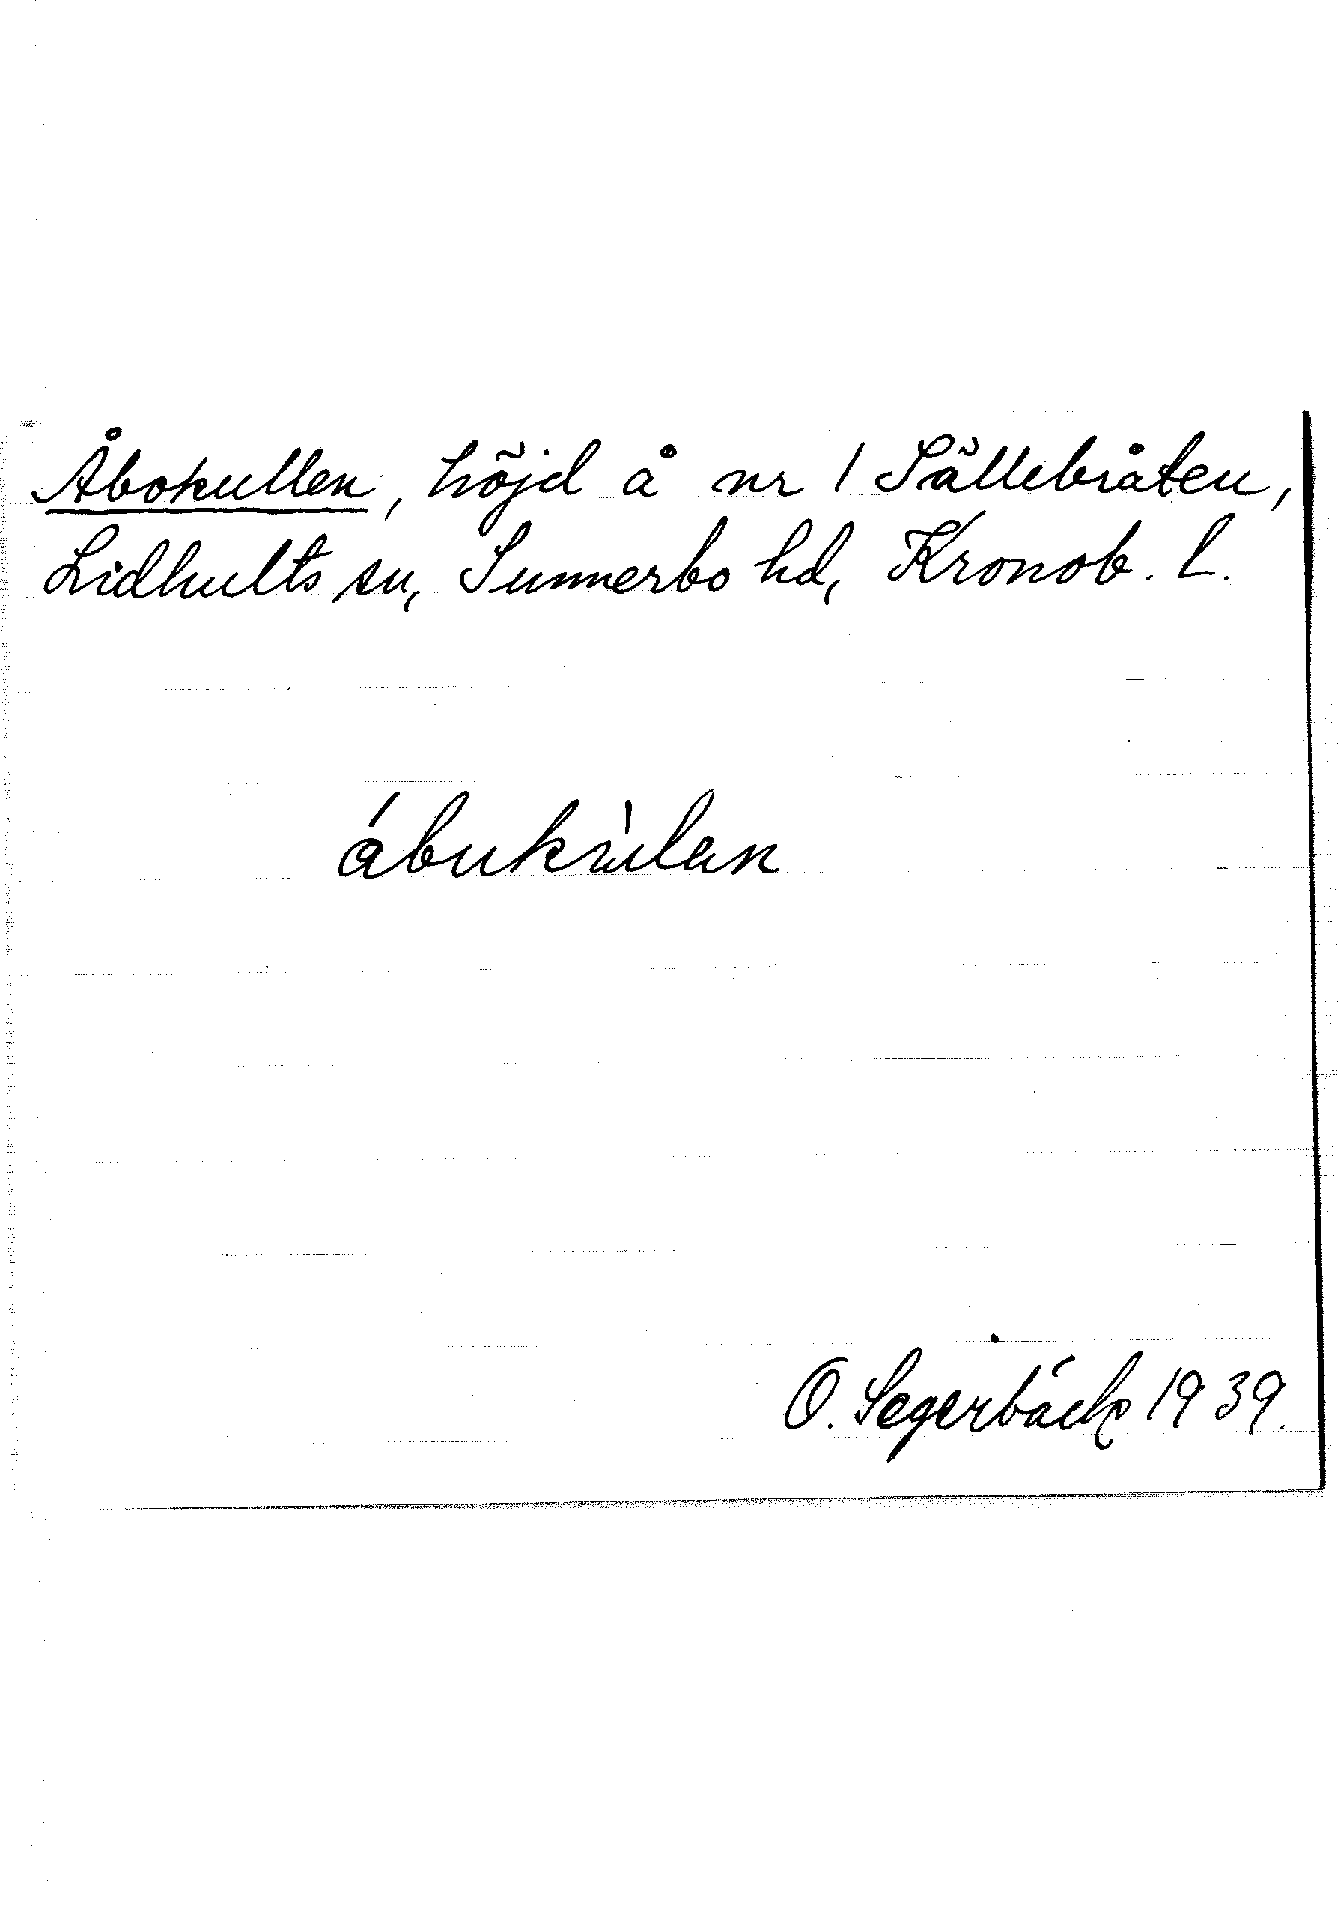 Åbokullen, höjd å nr 1 Sällebråten,
Lidhults sn, Sunnerbo hd, Kronob. l.
ábukùlen
O. Segerbäck 1939.